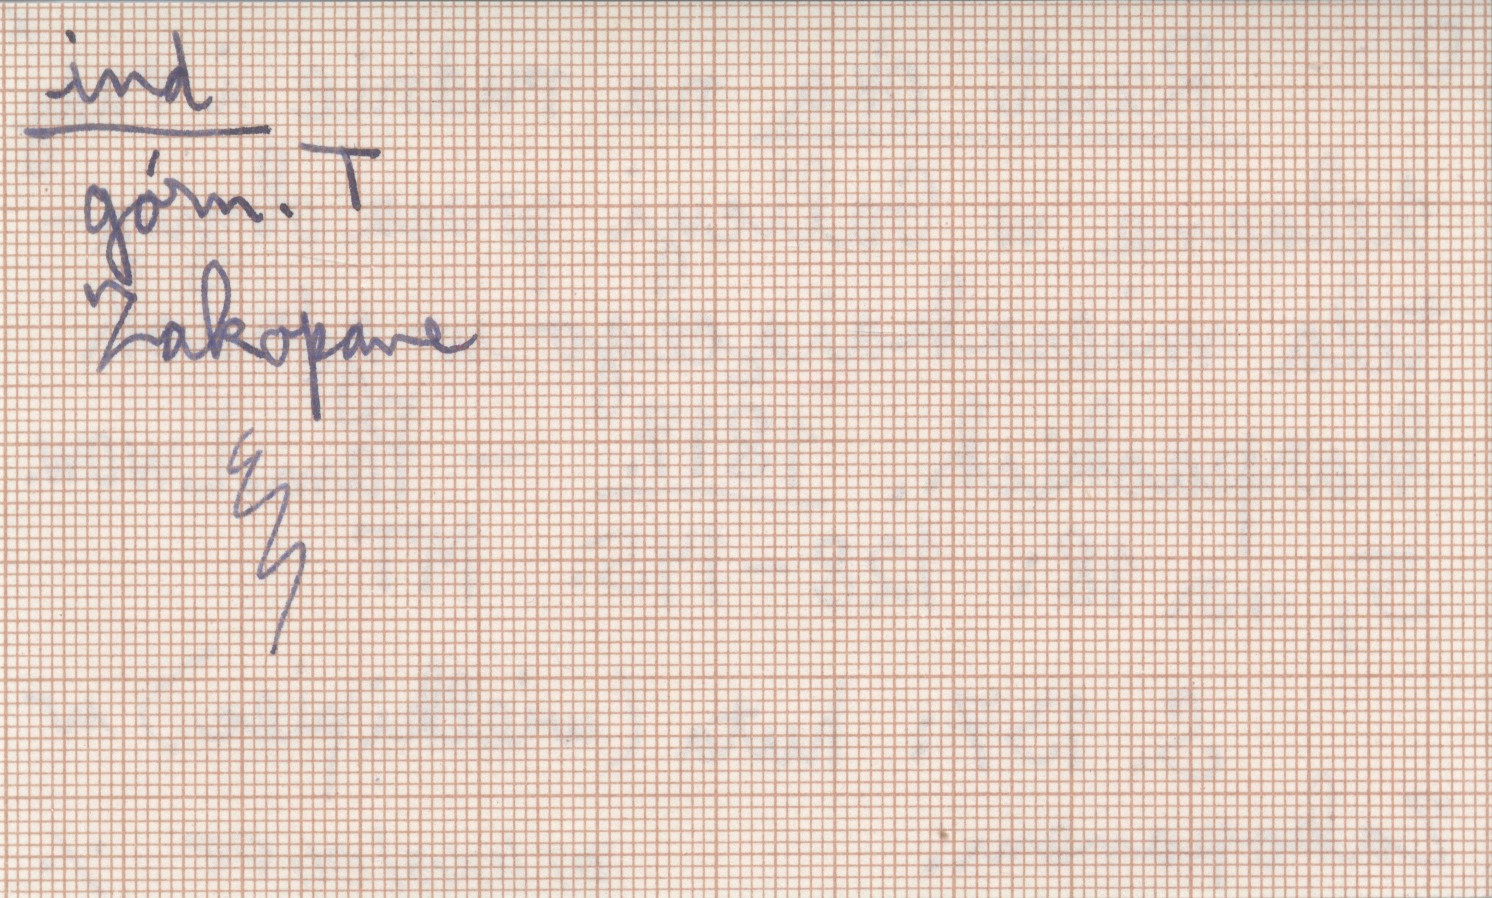 ind
górn. T
Zakopane